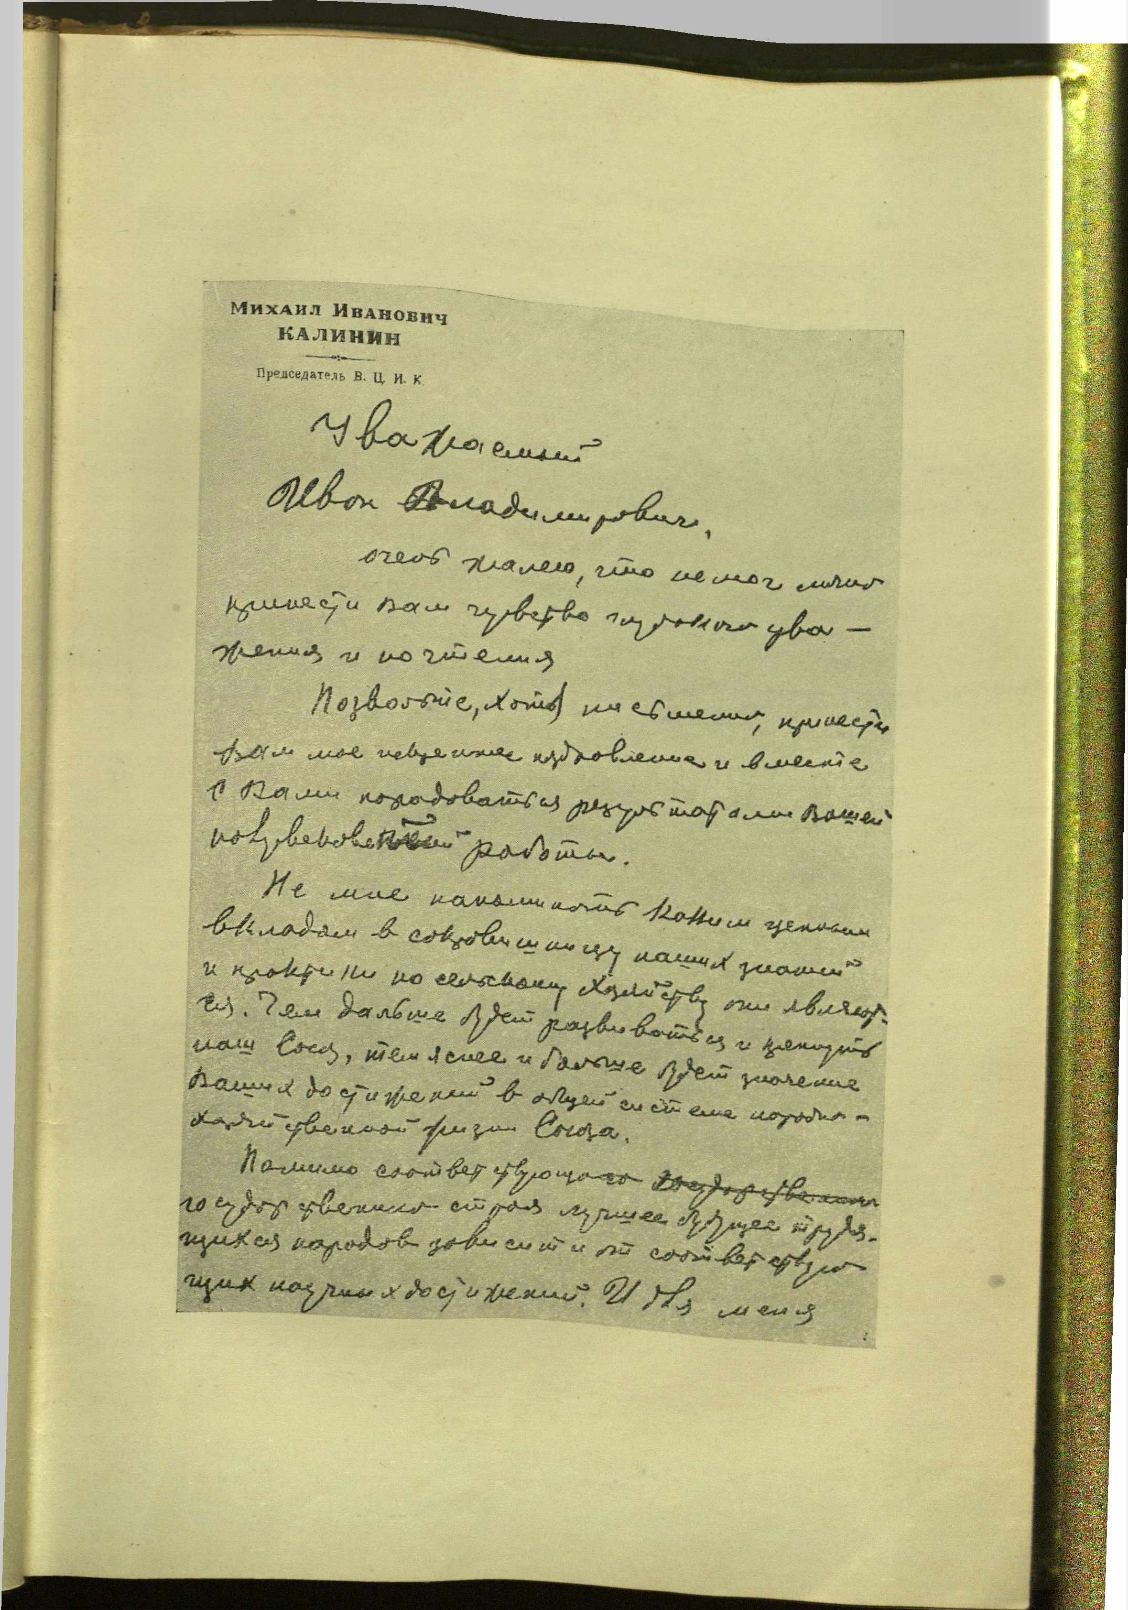 Михаил Иванович
КАЛИНИН
Председатель В. Ц. И. К.
Уважаемый
Иван Владимирович,
очень жалею, что не мог лично
принести Вам чувство глубокого ува-
жения и почтения
Позвольте, хотя письменно, принести
Вам мое искреннее поздравление и вместе
с Вами порадоваться результатами Вашей
полувековой работы.
Не мне напоминать каким ценным
вкладом в сокровищницу наших знаний
и практики по сельскому хозяйству они являют-
ся. Чем дальше будет развиваться и крепнуть
наш Союз, тем яснее и больше будет значение
Ваших достижений в общей системе народно-
хозяйственной жизни Союза.
Помимо соответствующего государственного
государственного строя лучшее будущее трудя-
щихся народов зависит и от соответствую
щих научных достижений. И для меня